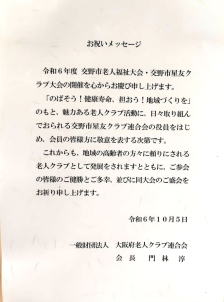 お祝いメッセージ
令和6年度 交野市老人福祉大会・交野市星友ク
ラブ大会の開催を心からお慶び申し上げます。
「のばそう!健康寿命、担おう!地域づくりを」
のもと、魅力ある老人クラブ活動に、日々取り組ん
でおられる交野市星友クラブ連合会の役員をはじ
め、会員の皆様方に敬意を表する次第です。
これからも、地域の高齢者の方々に頼りにされる
老人クラブとして発展をされますとともに、ご参会
の皆様のご健勝とご多幸、並びに同大会のご盛会を
お祈り申し上げます。
令和6年10月5日
一般財団法人 大阪府老人クラブ連合会
会長 門林 淳